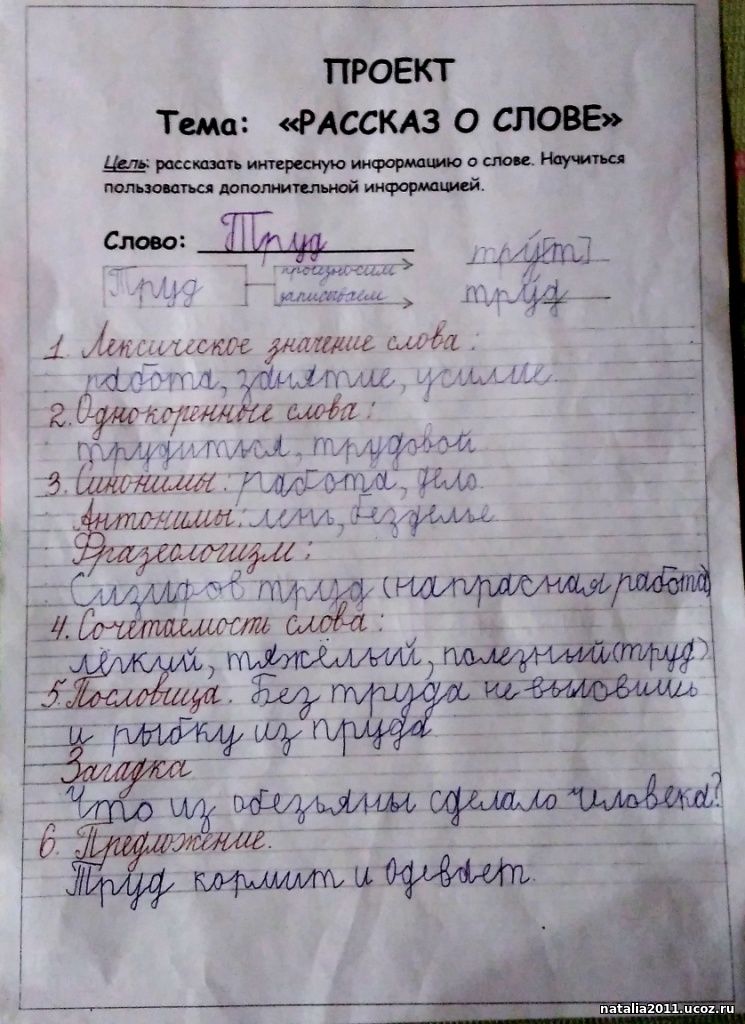 ПРОЕКТ
Тема: «РАССКАЗ О СЛОВЕ»
Цель: рассказать интересную информацию о слове. Научиться
пользоваться дополнительной информацией.
Слово: Труд
Труд произносим тру́[т]
записываем тру́д
1. Лексическое значение слова:
работа, занятие, усилие.
2. Однокоренные слова:
трудиться, трудовой
3. Синонимы: работа, дело.
Антонимы: лень, безделье.
Фразеологизм:
Сизифов труд (напрасная работа)
4. Сочетаемость слова:
лёгкий, тяжёлый, полезный (труд)
5. Пословица. Без труда не выловишь
и рыбку из пруда.
Загадка
Что из обезьяны сделало человека?
6. Предложение.
Труд кормит и одевает.
natalia2011.ucoz.ru